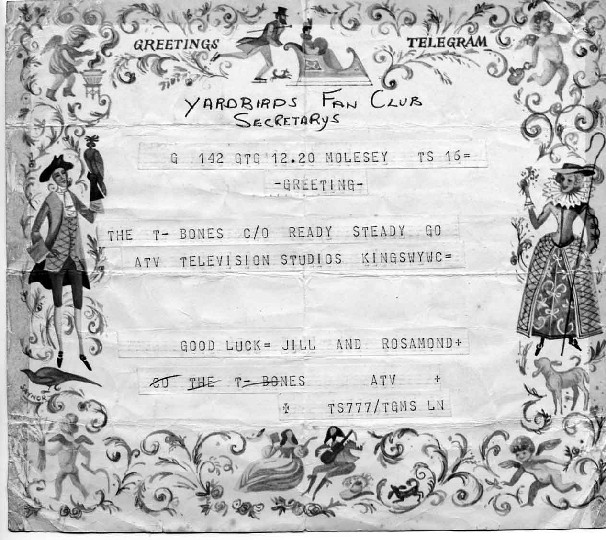 GREETINGS TELEGRAM
YARDBIRDS FAN CLUB
SECRETARYS
G 142 GTG 12.20 MOLESEY TS 16=
-GREETING-
THE T- BONES C/O READY STEADY GO
ATV TELEVISION STUDIOS KINGSWYWC=
GOOD LUCK= JILL AND ROSAMOND+
CO THE T- BONES ATV +
+ TS777/TGMS LN